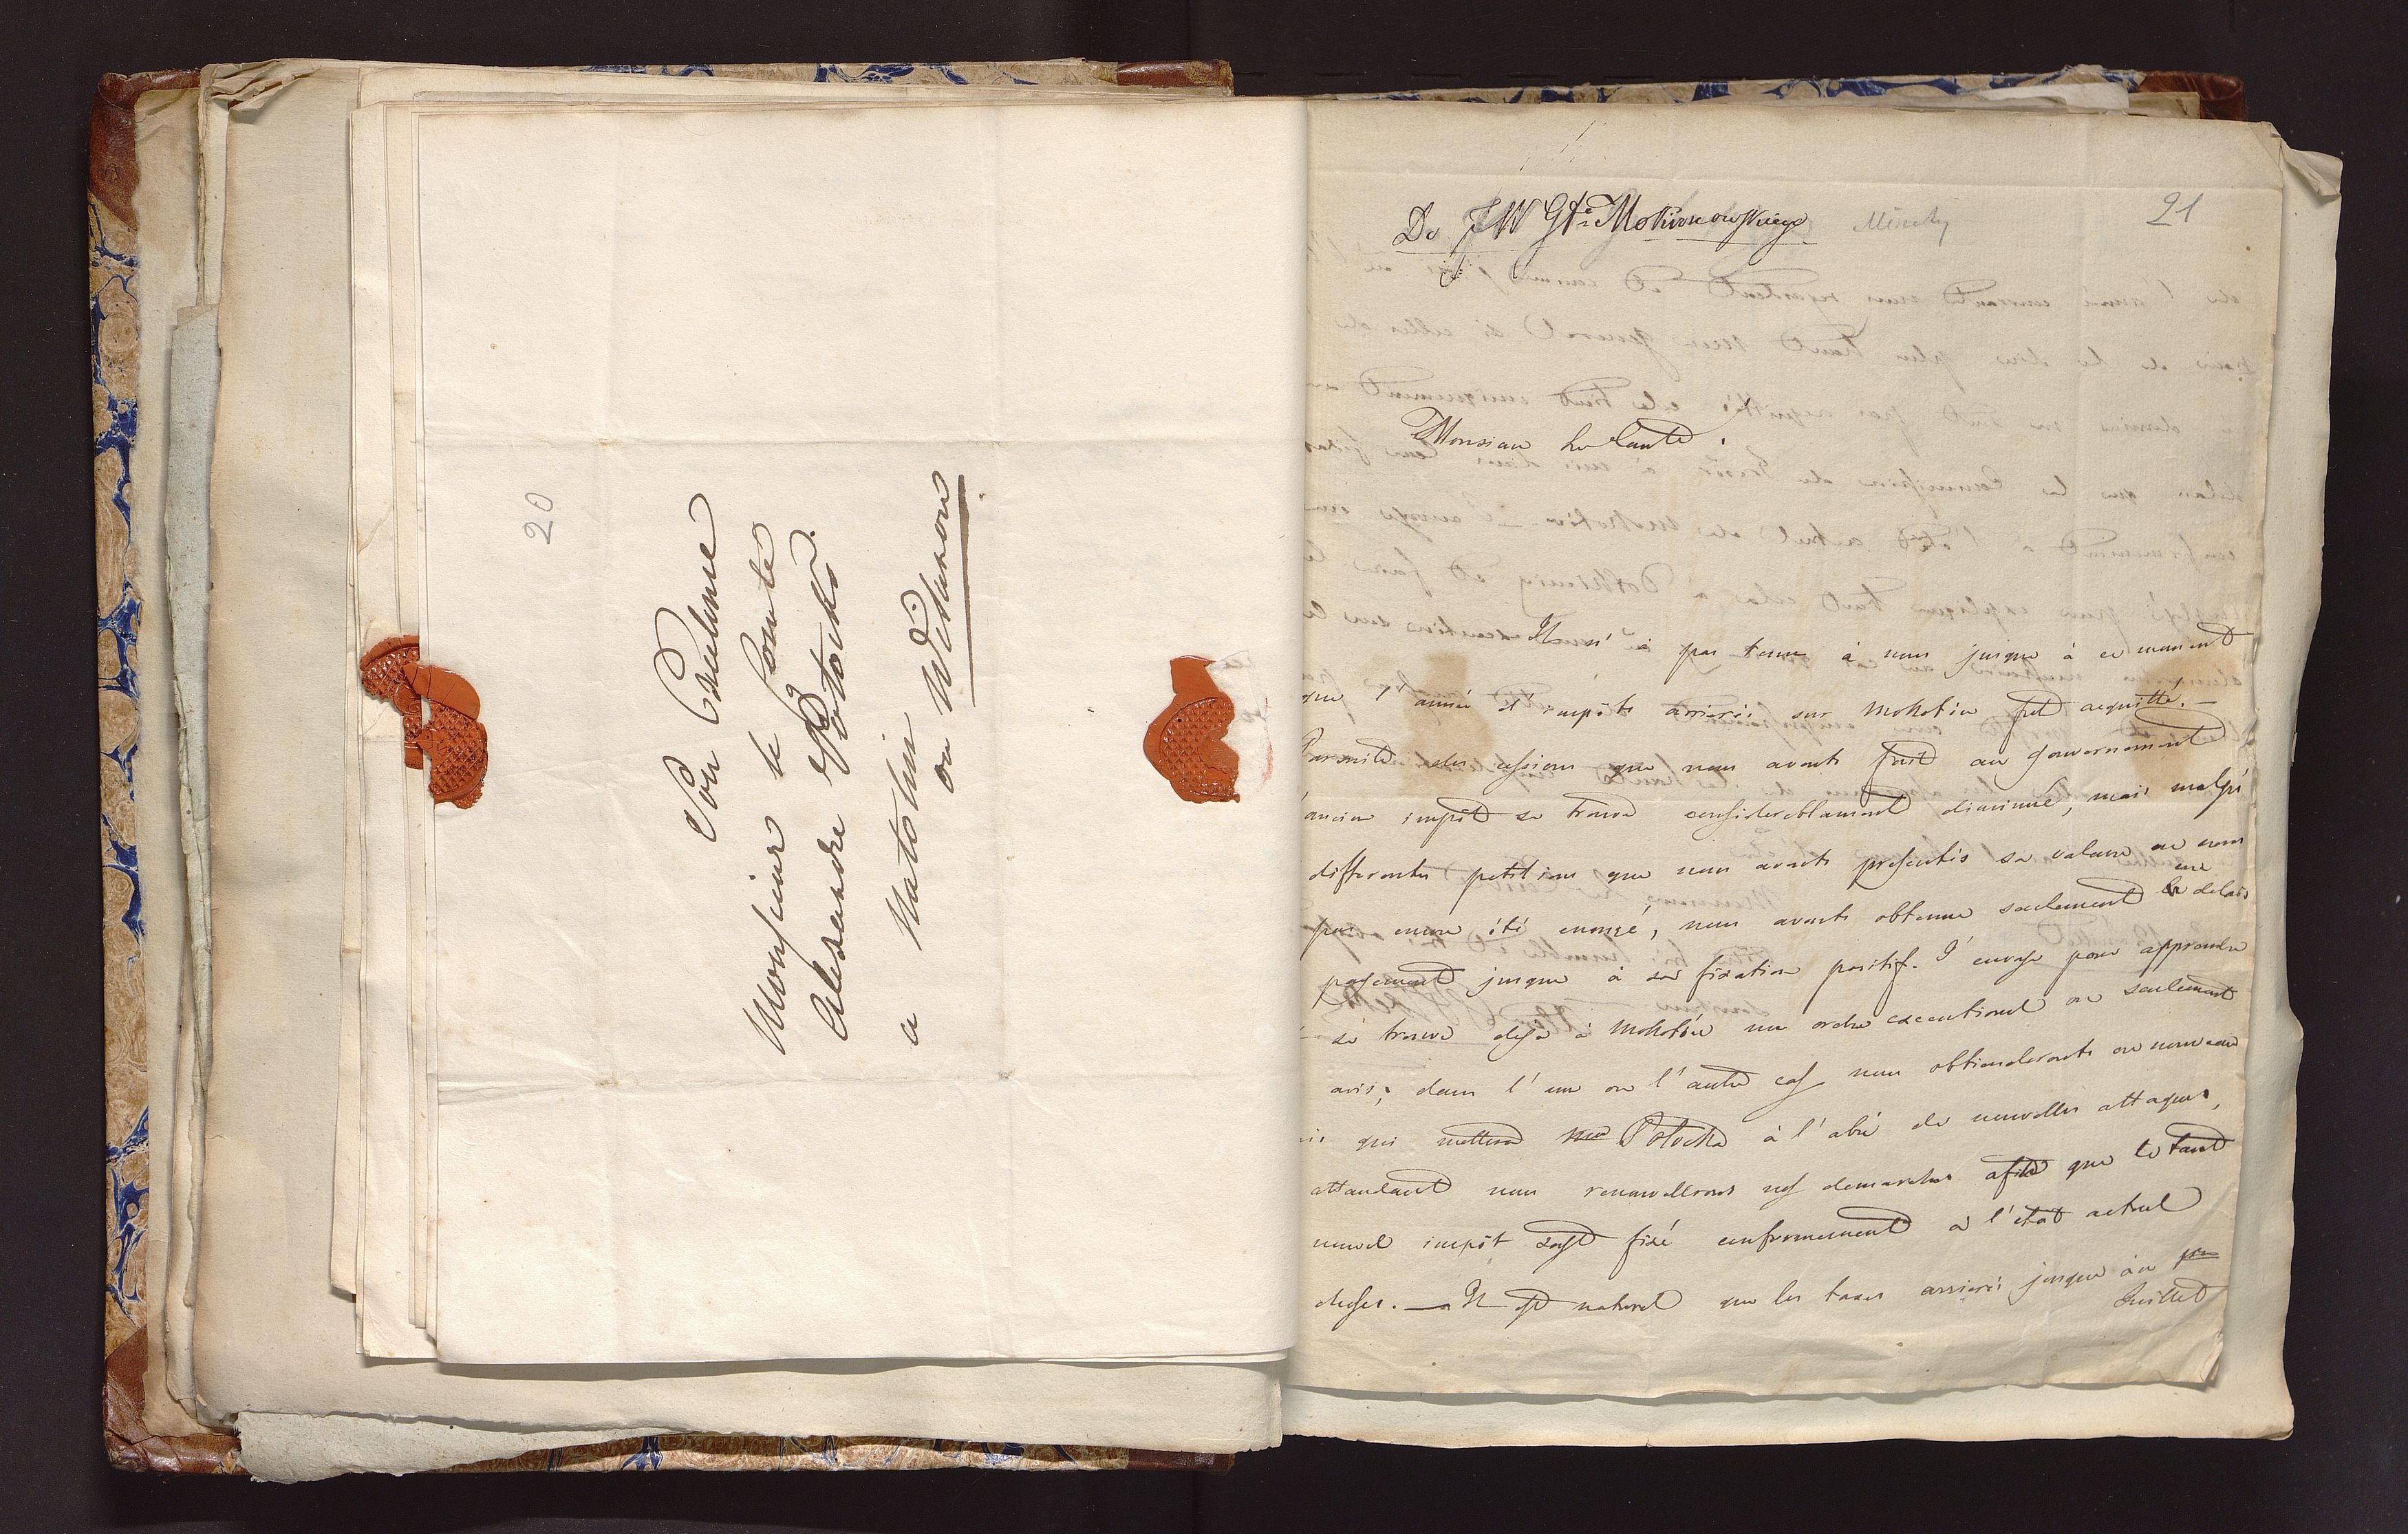 20
Son Excelence
Monsieur le Comte
Alexandre Potocki
a Natolin
ou Wilanow
21
Do JW Gła Mokronowskiego
Monsieur Le Comte
Il n'a pas tenu à nous jusque à ce moment
que l'année d'impôts arrierés sur Mokotów fut acquitté. —
Parsuite des cessions que nous avonts fait au gouvernement
ancien impôt se trouve considereblament diminué, mais malgré
differentes petitions que nous avonts presentés sa valeur ne nous
pas encore été enoncé, nous avonts obtenue seulement une delais
payement jusque à sa fixation positif. J'envoye pour apprendre
se trouve deja à Mokotów un ordre executionel ou seulement
avis; dans l'un ou l'autre cas nous obtienderonts ou nouveau
qui mettera Potocka à l'abri de nouvelles attaques,
attendant nous renouvellerons nos demarches afin que le taux
nouvel impôt soyt fixé conformement a l'etat actuel
choses. — Il est naturel que les taxes arrierés jusque àu
Juillet